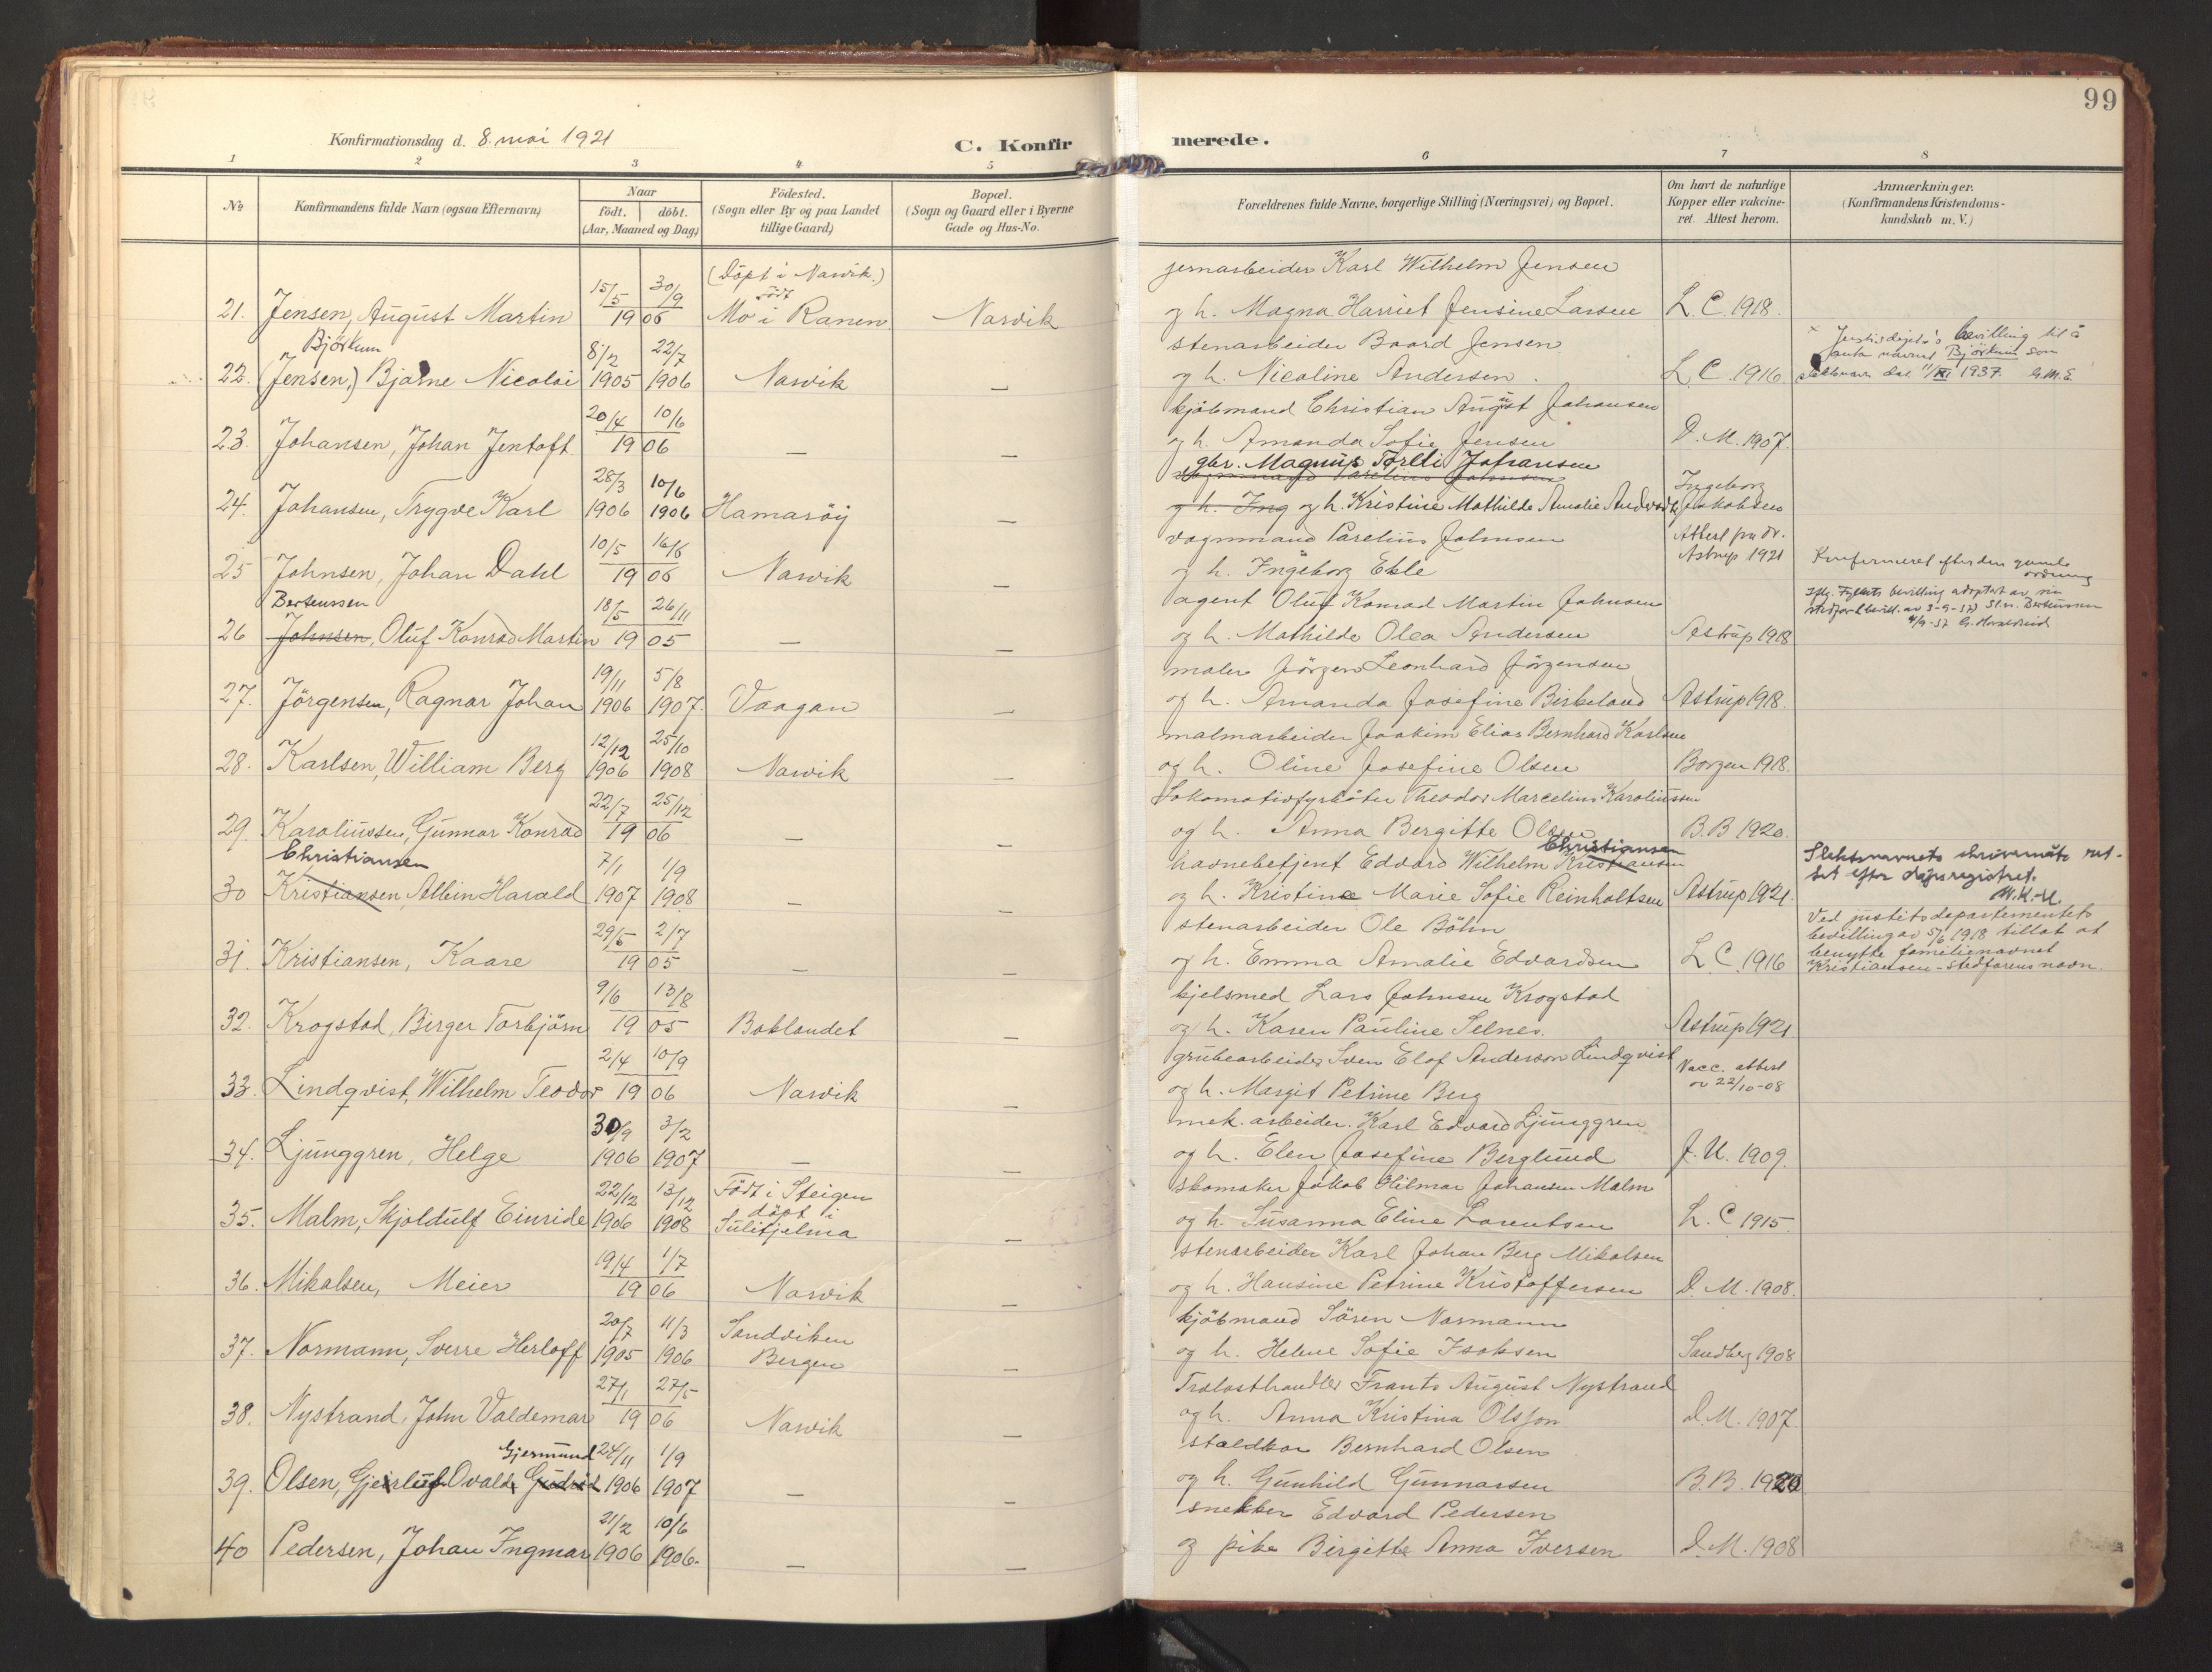 99
Konfirmationsdag d. 8. mai 1921
C. Konfirmerede.
1 2 3 4 5 6 7 8
No
Konfirmandens fulde Navn (ogsaa Efternavn)
Naar
födt. döbt.
(Aar, Maaned og Dag)
Födested.
(Sogn eller By og paa Landet
tillige Gaard)
Bopæl.
(Sogn og Gaard eller i Byerne
Gade og Hus-No.
Forældrenes fulde Navne, borgerlige Stilling (Næringsvei) og Bopæl.
Om havt de naturlige
Kopper eller vakcine-
ret. Attest herom.
Anmærkninger.
(Konfirmandens Kristendoms-
kundskab m. V.)
15/5 30/9 (Döpt i Narvik.) jernarbeider Karl Wilhelm Jensen
född
21. Jensen, August Martin 1906 Mo i Ranen Narvik og h. Magna Harriet Jensine Larsen L. C. 1918.
Björkum 8/2 22/7 stenarbeider Baard Jensen
22. (Jensen,) Bjarne Nicolai 1905 1906 Narvik — og h. Nicoline Andersen. L. C. 1916
× Justisdept's bevilling til å
anta navnet Björkum som
slektsnavn dat. 11/XI 1937. G.M.E.
20/4 10/6 kjöbmand Christian August Johansen
23. Johansen, Johan Jentoft 1906 — — og h. Amanda Sofie Jensen D. M. 1907.
28/3 10/6 gbr. Magnus Torleif Johansen
24. Johansen, Trygve Karl 1906 1906 Hamaröy — og h. Ing og h. Kristine Mathilde Amalie Ingeborg Jakobsen
10/5 16/6 vognmand Parelius Johnsen Attest fra dr.
25 Johnsen, Johan Dahl 1906 Narvik — og h. Ingeborg Ekle Astrup 1921
Konfirmeret efter den gamle
ordning
Bertenssen 18/5 26/11 agent Oluf Konrad Martin Johnsen
26 Johnsen, Oluf Konrad Martin 1905 — — og h. Mathilde Olea Andersen Astrup 1918
19/11 5/8 maler Jörgen Leonhard Jörgensen
27. Jörgensen, Ragnar Johan 1906 1907. Vaagan — og h. Amanda Josefine Birkeland Astrup 1918.
12/12 25/10 malmarbeider Joakim Elias Bernhard Karlsen
28. Karlsen, William Berg 1906 1908 Narvik — og h. Oline Josefine Olsen Borgen 1918.
22/7 25/12 Lokomotivfyrböter Theodor Marcelius Karoliussen
29. Karoliussen, Gunnar Konrad 1906 — — og h. Anna Bergitte Olsen B.B 1920.
Christiansen 7/1 1/9 havnebetjent Edvard Wilhelm Kristiansen Christiansen
30 Kristiansen, Albin Harald 1907 1908 — — og h. Kristine Marie Sofie Reinholtsen Astrup 1921.
Slektsnavnets skrivemåte ret-
tet efter dåpsregistret.
29/5 2/7 stenarbeider Ole Böhn
31. Kristiansen, Kaare 1905 — — og h. Emma Amalie Edvardsen L. C. 1916
Ved justitsdepartementets
bevilling av 5/6 1918 tillatt at
benytte familienavnet
Kristiansen - stedfarens navn.
9/6 13/8 kjelsmed Lars Johnsen Krogstad
32. Krogstad, Birger Torbjörn 1905 Baklandet — og h. Karen Pauline Selnes. Astrup 1921
2/4 10/9 grubearbeider Sven Elof Anderson Lindqvist Vacc. attest
33. Lindqvist, Wilhelm Teodor 1906 Narvik — og h. Margit Petrine Berg av 22/10-08
30/9 3/2 mek. arbeider. Karl Edvard Ljunggren
34. Ljunggren, Helge 1906 1907 — — og h. Elen Josefine Berglund J. U. 1909.
22/12 13/12 Födt i Steigen skomaker Jakob Hilmar Johansen Malm
döpt i
35. Malm, Skjoldulf Einride 1906 1908 Sulitjelma — og h. Susanna Eline Lorentsen L. C 1915.
19/4 1/7 stenarbeider Karl Johan Berg Mikalsen
36. Mikalsen, Meier 1906 Narvik — og h. Hansine Petrine Kristoffersen D. M. 1908.
20/7 11/3 Sandviken kjöbmand Sören Normann
37. Normann, Sverre Herloff 1905 1906 Bergen — og h. Helene Sofie Isaksen Sandberg 1908
27/1 27/5 Trælasthandler Frants August Nystrand
38. Nystrand, John Valdemar 1906 Narvik — og h. Anna Kristina Olsson D. M. 1907
Gjermund 24/11 1/9 staldkar Bernhard Olsen
39. Olsen, Gjeirluf Ovald Gudrid 1906 1907 — — og h. Gunhild Gunnarsen B.B. 1920
21/2 10/6 snekker Edvard Pedersen
40 Pedersen, Johan Ingmar 1906 1906. — — og pike Birgitte Anna Iversen D. M. 1908